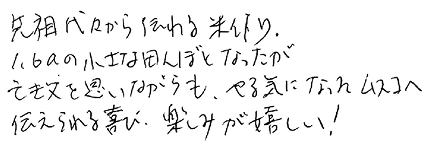 先祖代々から伝わる米作り.
1.6aの小さな田んぼとなったが
を思いながらも、やる気になったムスコへ
伝えられる喜び、楽しみが嬉しい!